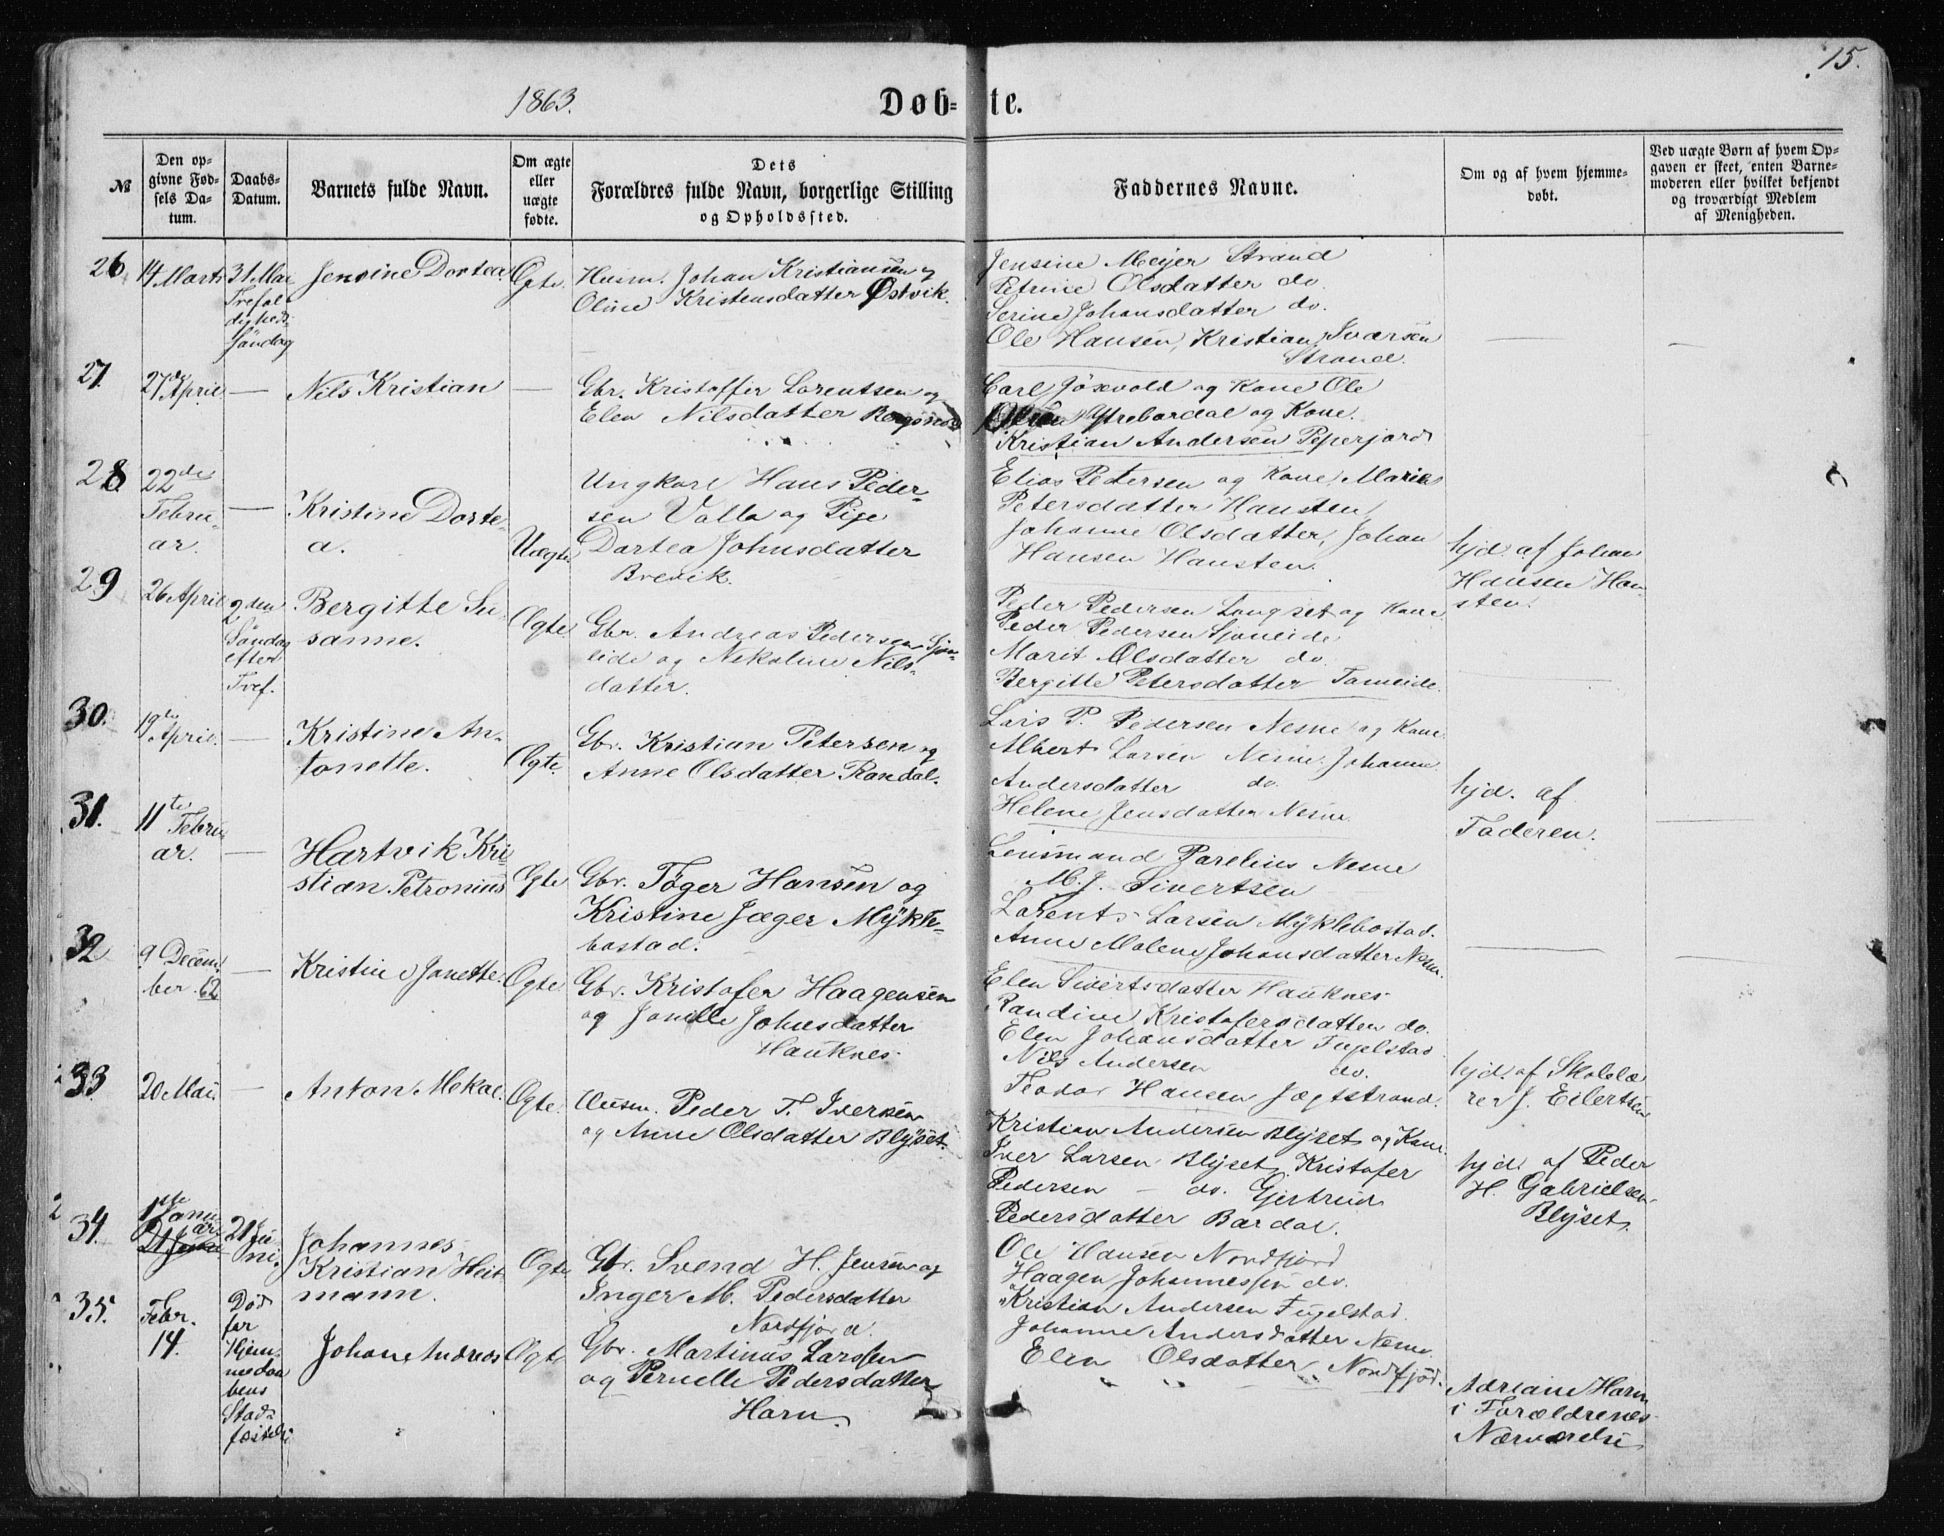 15.
1863.
Døb-
te.
№
Den op-
givne Fød-
sels Da-
tum.
Daabs-
Datum.
Barnets fulde Navn.
Om ægte
eller
uægte
fødte.
Dets
Forældres fulde Navn, borgerlige Stilling
og Opholdssted.
Faddernes Navne.
Om og af hvem hjemme-
døbt.
Ved uægte Børn af hvem Op-
gaven er skeet, enten Barne-
moderen eller hvilket bekjendt
og troværdigt Medlem
af Menigheden.
26
14 Marts
31 Mai
Trefol
digheds
Søndag
Jensine Dortea
Ægte
Husm. Johan Kristiansen og
Oline Kristensdatter Østvik.
Jensine Meijer Strand
Petrine Olsdatter do.
Serine Johansdatter do.
Ole Hansen, Kristian Iversen
Strand.
27.
27de April
—
Nils Kristian
—
Gbr. Kristoffer Lorentsen og
Elen Nilsdatter
Carl Jöxvold og Kone Ole
Olsen Ytrebardal og Kone.
Kristian Andersen
28
22de
Febru-
ar.
—
Kristine Dorte-
a.
Uægte
Ungkarl Hans Peder-
sen Valla og Pige
Dortea Johnsdatter
Brevik.
Elias Petersen og Kone, Marie
Petersdatter Hansten,
Johanne Olsdatter, Johan
Hansen Hansten.
hjd. af Johan
Hansen Han
sten.
29
26 April
2den
Søndag
efter
Tref.
Bergitte Su-
sanne.
Ægte
Gbr. Andreas Pedersen Sjon-
eide og Nikoline Nils-
datter.
Peder Pedersen Langset og Kone,
Peder Pedersen Sjoneide
Marit Olsdatter do.
Bergitte Petersdatter
30.
19de
April.
—
Kristine An-
tonette.
Ægte.
Gbr. Kristian Petersen og
Anne Olsdatter Randal.
Lars P. Pedersen Nesne og Kone
Albert Larsen Nesne. Johanne
Andersdatter do.
Helene Jensdatter Nesne
hjd. af
Faderen.
31.
11te
Febru
ar.
—
Hartvik Kri
stian Petronius
Ægte
Gbr. Töger Hansen og
Kristine Jæger Mÿkle-
bostad.
Lensmand Parelius Nesne
M. J. Sivertsen
Lorents Larsen Mÿklebostad.
Anne Malene Johansdatter Nesne.
32
9 Decem
ber 62
—
Kristine Janette.
Ægte
Gbr. Kristofer Haagensen
og Jonille Johnsdatter
Hauknes.
Elen Sivertsdatter Hauknes
Randine Kristofersdatter do.
Elen Johansdatter Fugelstad
Nils Andersen do.
Teodor Hansen Jægtstrand.
hjd. af Skolelæ
rer J. Eilertsen
33
20 Mai.
—
Anton Mekal.
Ægte.
Husm. Peder T. Iversen
og Anne Olsdatter Blÿset.
Kristian Andersen Blÿset og Kone.
Iver Larsen Blÿset, Kristofer
Pedersen — do. Gjertrud
Pedersdatter Bardal.
hjd. af Peder
H. Gabrielsen
Blÿset.
34.
1ste
Janu
ar
21 Ju
ni.
Johannes
Kristian Heit
mann.
Ægte
Gbr. Svend H. Jensen og
Inger M. Pedersdatter
Nordfjord.
Ole Hansen Nordfjord
Haagen Johannessen do.
Kristian Andersen Fugelstad
Johanne Andersdatter Nesne
Elen Olsdatter Nordfjord.
35.
Febr.
14.
Død
før
Hjem-
medaa
bens
Stad-
fæstelse
Johan Andreas
Ægte
Gbr. Martinus Larssen
og Pernelle Pedersdatter
Harn.
" " —
Adriane Harn
i Forældrenes
Nærværelse